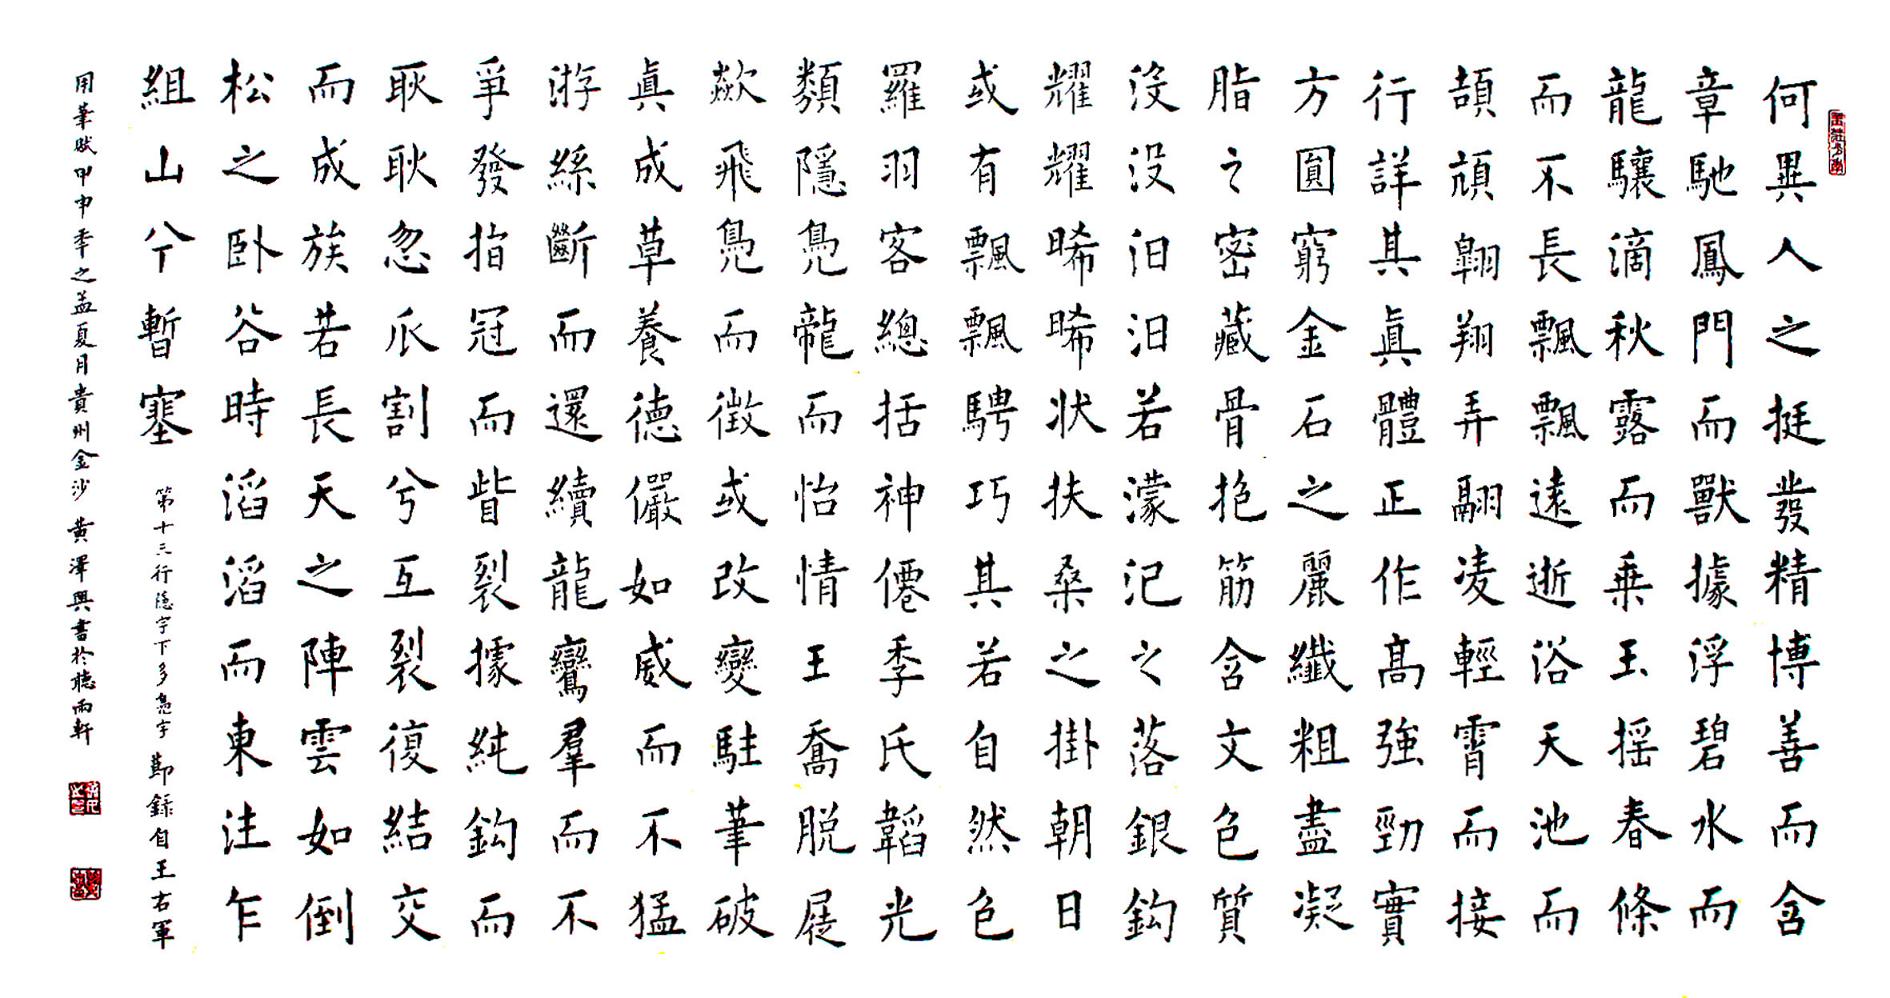 何異人之挺發精博善而含
章馳鳳門而獸據浮碧水而
龍驤滴秋露而乗玉摇春條
而不長飄飄遠逝浴天池而
頡頏翺翔弄翮凌輕霄而接
行詳其眞體正作高強勁實
方圓窮金石之麗纖粗盡凝
脂之密藏骨抱筋含文色質
没没汩汩若濛汜之落銀鈎
耀耀晞晞状扶桑之掛朝日
或有飄飄騁巧其若自然包
羅羽客總括神僊季氏韜光
類隱鳧龍而怡情王喬脱屣
歘飛鳧而徵或改變駐筆破
眞成草養德儼如威而不猛
游絲斷而還續龍鸞羣而不
爭發指冠而眥裂據純鈎而
耿耿忽爪割兮互裂復結交
而成族若長天之陣雲如倒
松之卧谷時滔滔而東注乍
組山兮暫塞 第十三行隱字下多鳧字 節錄自王右軍
用筆賦甲申秊之孟夏月貴州金沙 黄澤興書於聽雨軒